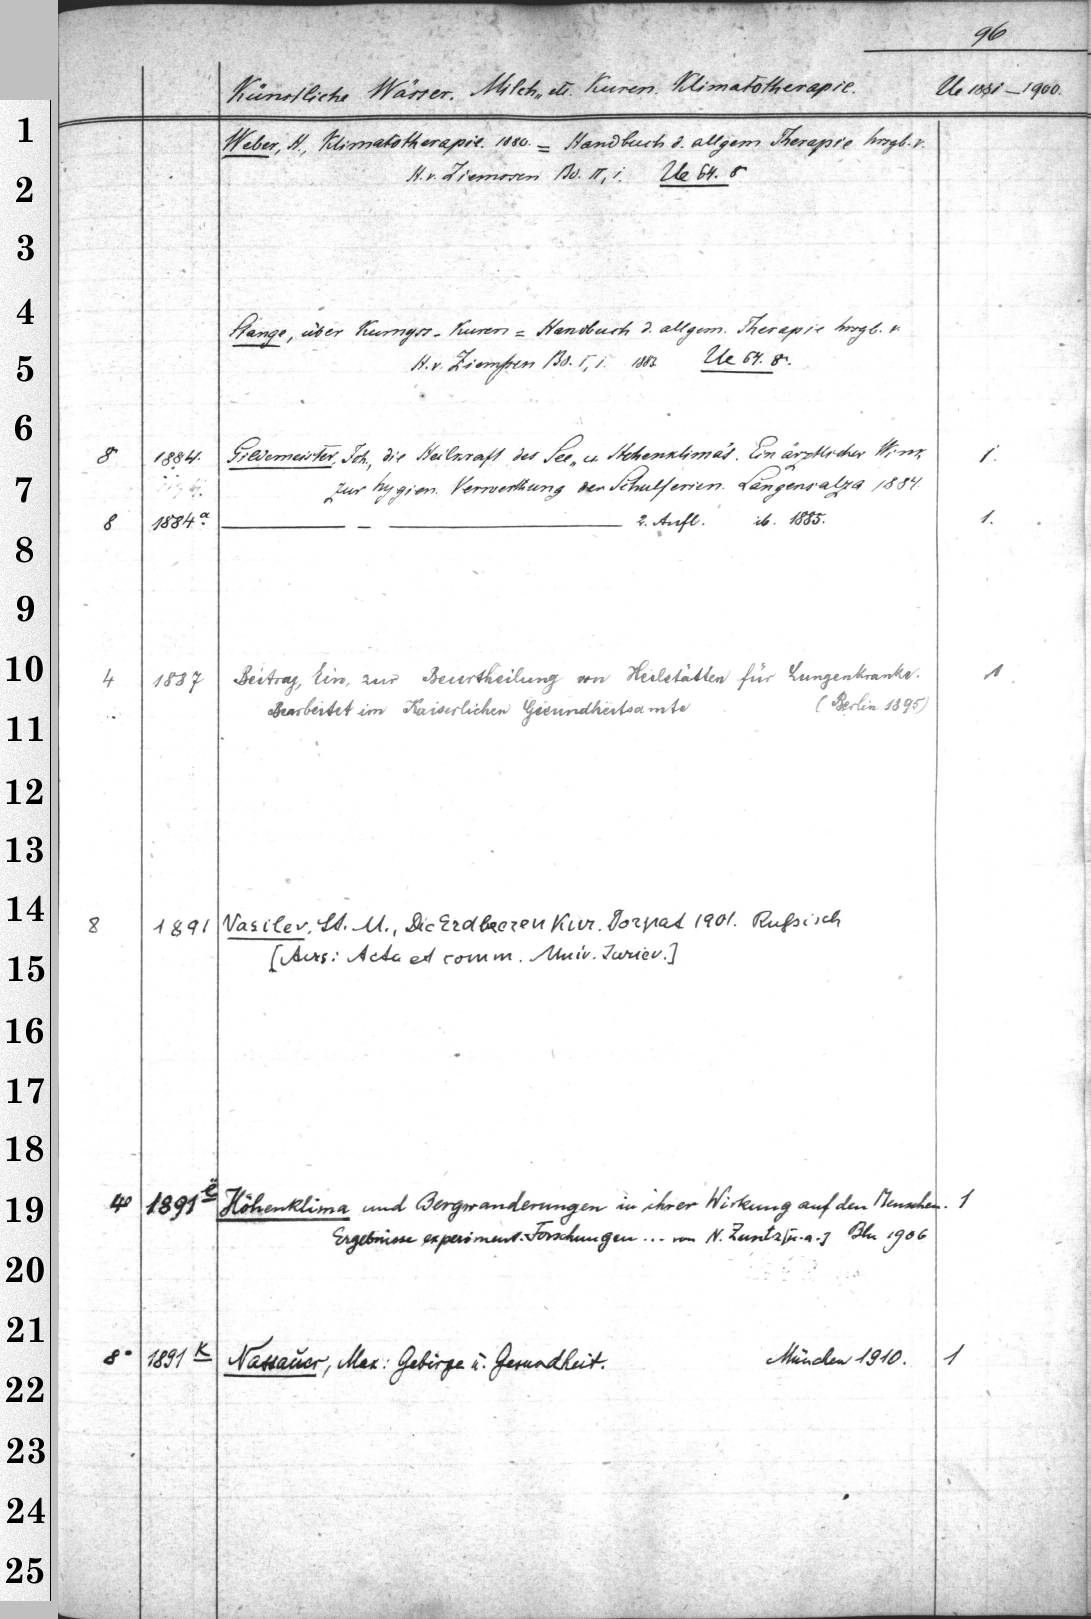 96
Künstliche Wässer. Milch- etc. Kuren. Klimatotherapie. Ue 1881–1900.
Weber, H., Klimatotherapie. 1880. = Handbuch d. allgem Therapie hrsgb. v.
H. v. Ziemssen Bd. II, 1. Ue 64. 8°
Stange, über Kumyss-Kuren = Handbuch d. allgem. Therapie hrsgb. v
H. v. Ziemssen Bd. I, 1. 1883 Ue 64. 8°.
8° 1884. Gildemeister, Joh., die Heilkraft des See- u. Höhenklima's. Ein ärztlicher Wink
zur hygien. Verwerthung der Schulferien. Langensalza 1884. 1.
8 1884a. — 2. Aufl. ib. 1885. 1.
4 1887 Beitrag, Ein, zur Beurtheilung von Heilstätten für Lungenkranke. 1
Bearbeitet im Kaiserlichen Gesundheitsamte (Berlin 1895)
8 1891 Vasilev, St. M., Die Erdbeeren Kur. Dorpat 1901. Russisch
[Aus: Acta et comm. Univ. Juriev.]
4° 1891 e Höhenklima und Bergwanderungen in ihrer Wirkung auf den Menschen. 1
Ergebnisse experiment. Forschungen ... von N. Zuntz [u. a.] Bln 1906
8° 1891 K Nassauer, Max: Gebirge u. Gesundheit. München 1910. 1
1
2
3
4
5
6
7
8
9
10
11
12
13
14
15
16
17
18
19
20
21
22
23
24
25